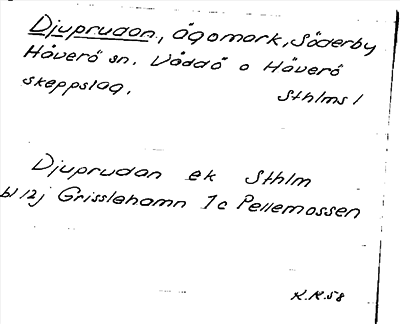 Djuprudan, Ägomark, Söderby
Häverö sn. Väddö o Häverö
skeppslag. Sthlms l
Djuprudan ek Sthlm
bl 12j Grisslehamn 1c Pellemossen
K.R.58